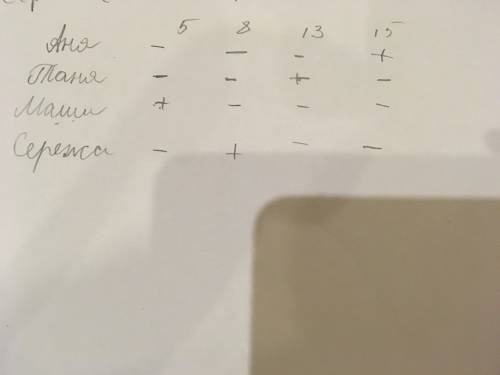 5 8 13 15
Аня - - - +
Таня - - + -
Маши + - - -
Сережа - + - -